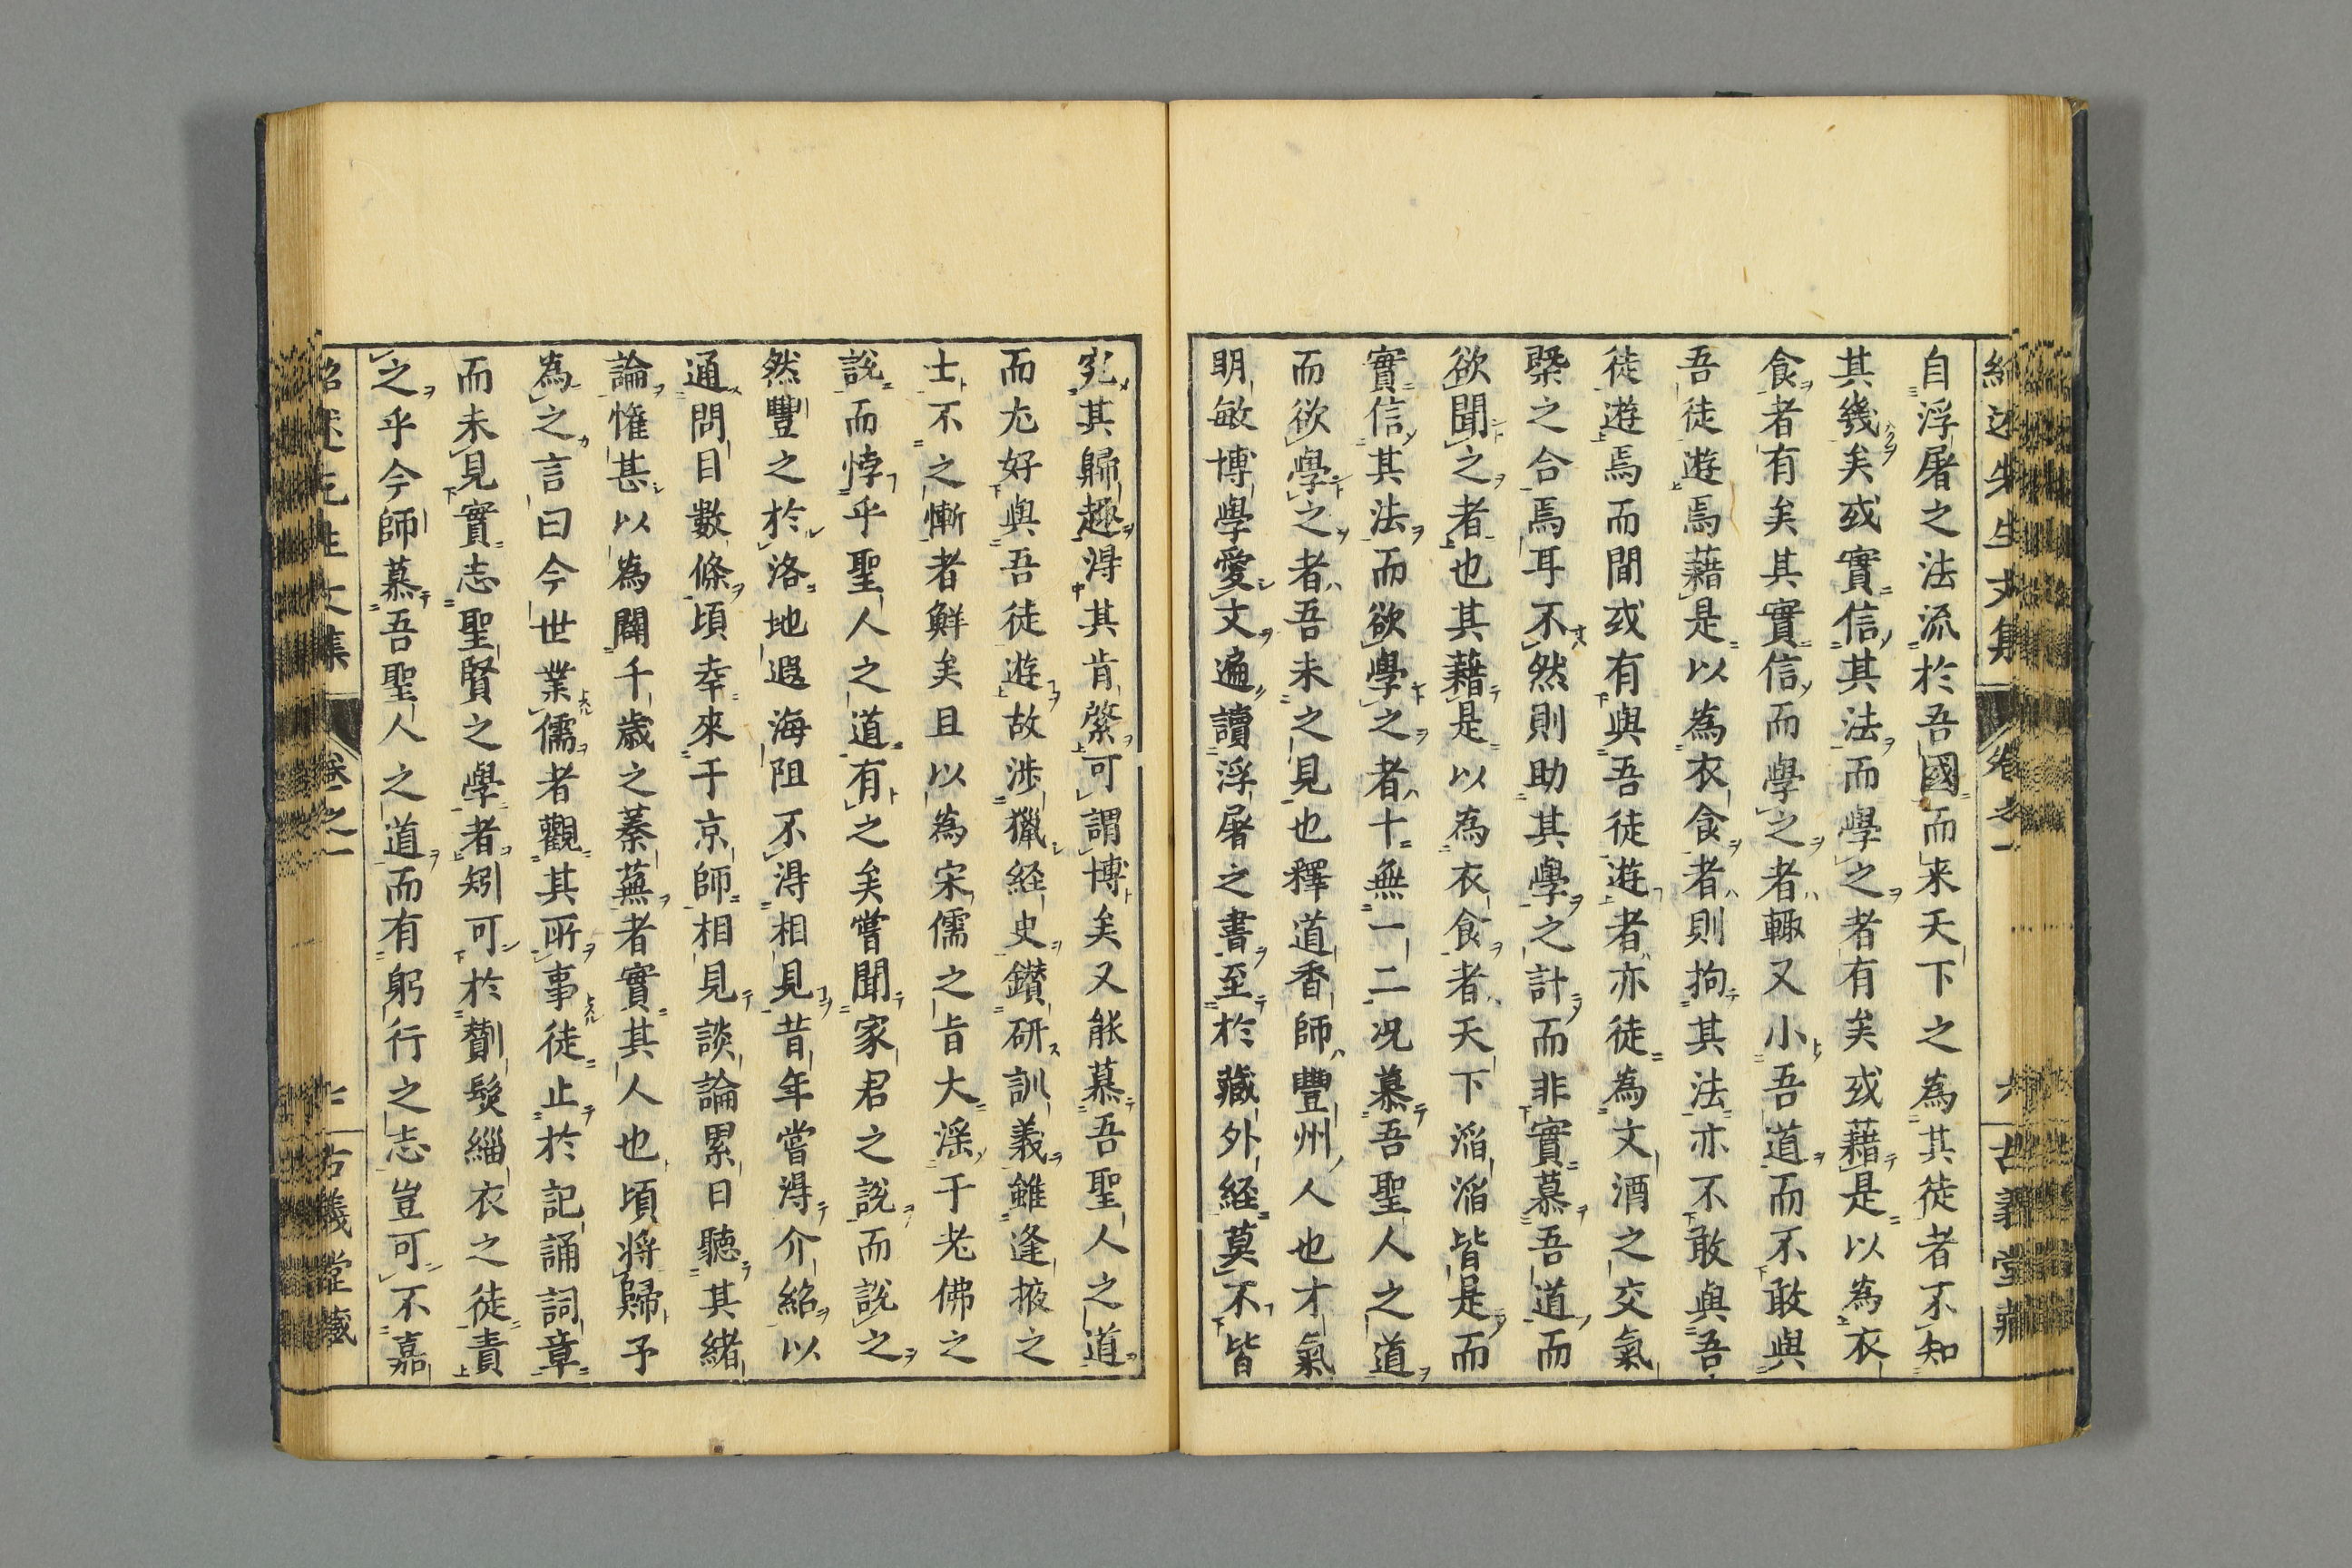 紹述先生文集 卷之一 六 古義堂藏
自浮屠之法流於吾國而来天下之為其徒者不知
其幾矣或實信其法而學之者有矣或藉是以為衣
食者有矣其實信而學之者輙又小吾道而不敢與
吾徒遊焉藉是以為衣食者則拘其法亦不敢與吾
徒遊焉而間或有與吾徒遊者亦徒為文酒之交氣
槩之合焉耳不然則助其學之計而非實慕吾道而
欲聞之者也其藉是以為衣食者天下滔滔皆是而
實信其法而欲學之者十無一二况慕吾聖人之道
而欲學之者吾未之見也釋道香師豐州人也才氣
明敏博學愛文遍讀浮屠之書至於藏外経莫不皆
究其歸趣得其肯綮可謂博矣又能慕吾聖人之道
而尤好與吾徒遊故渉獵経史鑚研訓義雖逢掖之
士不之慚者鮮矣且以為宋儒之旨大滛于老佛之
說而悖乎聖人之道有之矣嘗聞家君之說而說之
然豐之於洛地遐海阻不得相見昔年嘗得介紹以
通問目數條頃幸來于京師相見談論累日聽其緒
論惟甚以為闢千歳之蓁蕪者實其人也頃将歸予
為之言曰今世業儒者觀其所事徒止於記誦詞章
而未見實志聖賢之學者矧可於䰂髮緇衣之徒責
之乎今師慕吾聖人之道而有躬行之志豈可不嘉
紹述先生文集 卷之一 七 古義堂藏